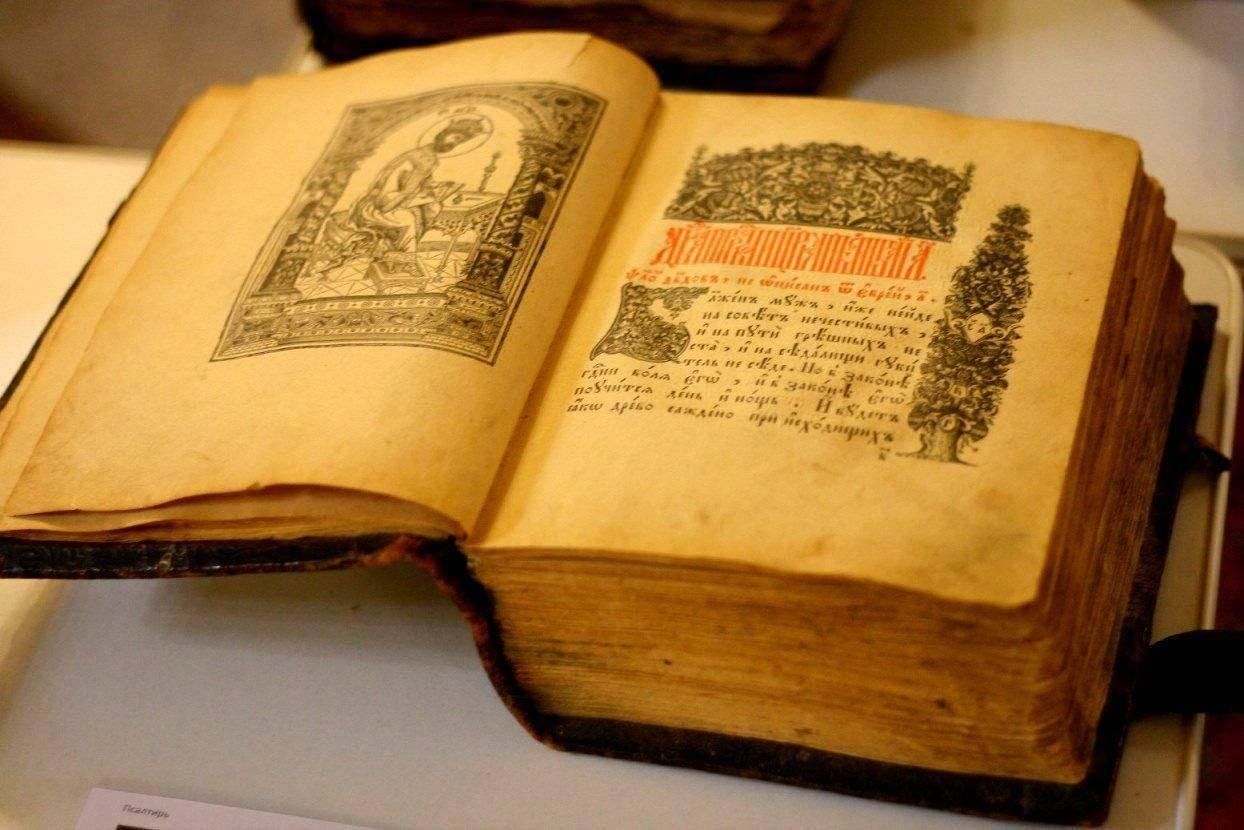 дв҃довъ, не ѡ҆пи́санъ ѿ є҆вре́й, а҃.
Блже́нъ мꙋжъ, и҆́же не и҆́де
на совѣтъ нечести́выхъ,
и҆ на пꙋти̑ грѣ́шныхъ не
ста̀, и҆ на сѣда́лищи гꙋби́
тель не сѣ́де. Но в̾ зако́нѣ
гдⷭ҇ни во́лѧ є҆гѡ̀, и҆ в̾ зако́нѣ є҆гѡ̀
поꙋчи́тсѧ де́нь и҆ нощь. И бꙋдетъ
ꙗ҆́кѡ дре́во сажде́но при и҆схо́дищихъ
Псалтирь